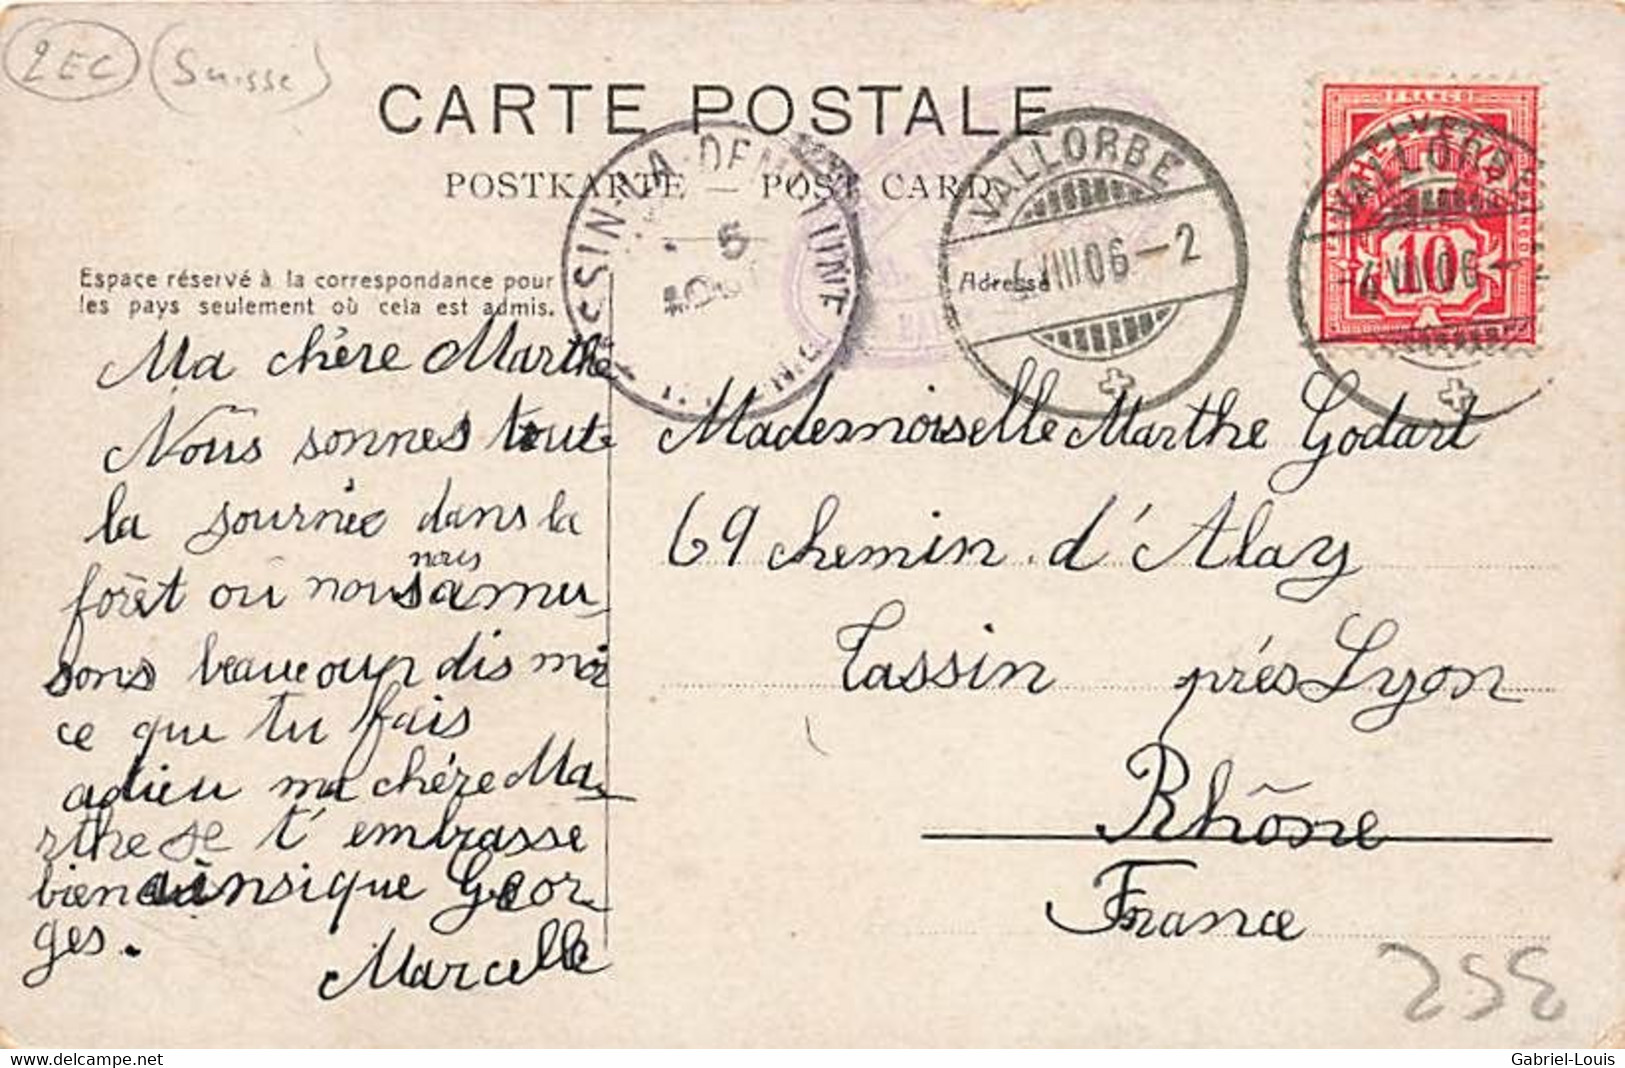 2EC (Suisse)
CARTE POSTALE
POSTKARTE — POST CARD
Espace réservé à la correspondance pour
les pays seulement où cela est admis.
Adresse
VALLORBE
4 VIII 06 - 2
FRANCO
HELVETIA
10
VALLORBE
4 VIII 06
TASSIN-LA-DEMI-LUNE
5
Ma chère Marthe
Nous sonnes toute
la journée dans la
forêt où nous
nous
amu
sons beaucoup dis moi
ce que tu fais
adieu ma chère Ma-
rthe je t'embrasse
bien ainsique Geor-
ges.
Marcelle
Mademoiselle Marthe Godart
69 chemin d'Alay
Tassin près Lyon
Rhône
France
delcampe.net
Gabriel-Louis